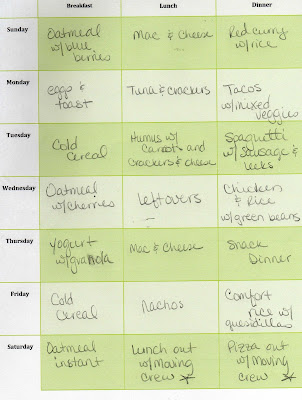 Breakfast Lunch Dinner
Sunday
Oatmeal
w/ blue
berries
Mac & Cheese
Red curry
w/ rice
Monday
eggs &
toast
Tuna & crackers
Tacos
w/ mixed
veggies
Tuesday
Cold
Cereal
Humus w/
Carrots and
Crackers & cheese
Spagutti
w/ Sausage &
leeks
Wednesday
Oatmeal
w/ cherries
leftovers
Chicken
& Rice
w/ green beans
Thursday
yogurt
w/ granola
Mac & Cheese
Snack
Dinner
Friday
Cold
Cereal
nachos
Comfort
rice w/
quesidillas
Saturday
Oatmeal
instant
Lunch out
w/ Moving
crew *
Pizza out
w/ Moving
crew *